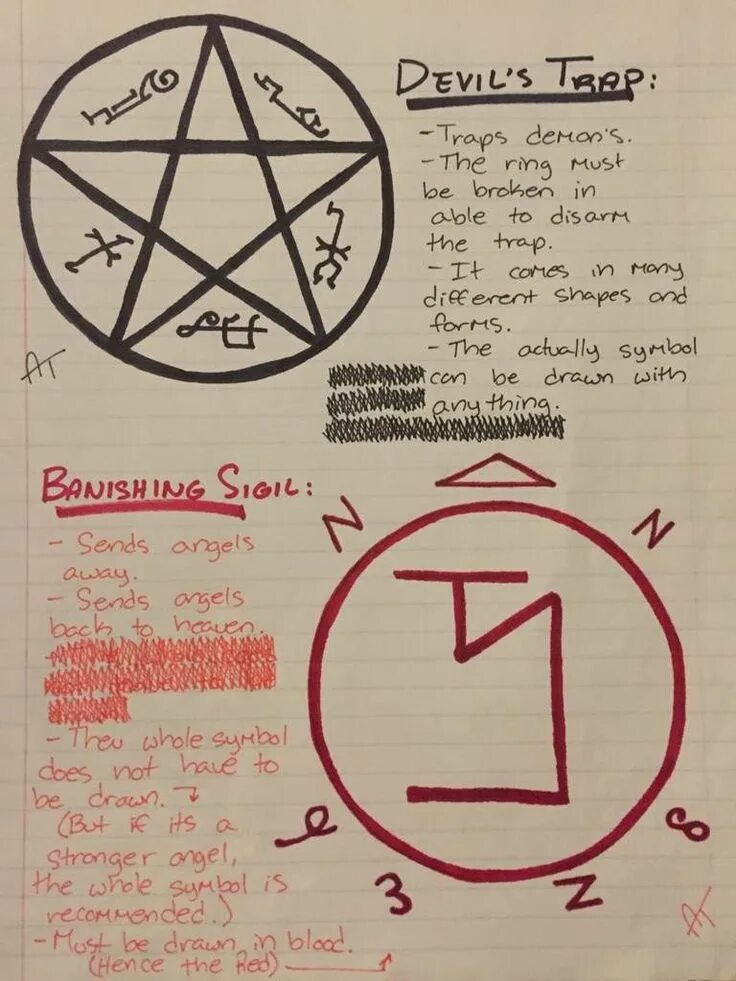 DEVIL'S TRAP:
- Traps demon's.
- The ring must
be broken in
able to disarm
the trap.
- It comes in many
different shapes and
forms.
- The actually symbol
can be drawn with
anything.
AT
BANISHING SIGIL:
- Sends angels
away.
- Sends angels
back to heaven.
- Theu whole symbol
does not have to
be drawn.
(But if its a
stronger angel,
the whole symbol is
recommended.)
- Must be drawn in blood.
(Hence the Red)
N N
e 8
3 Z
AT